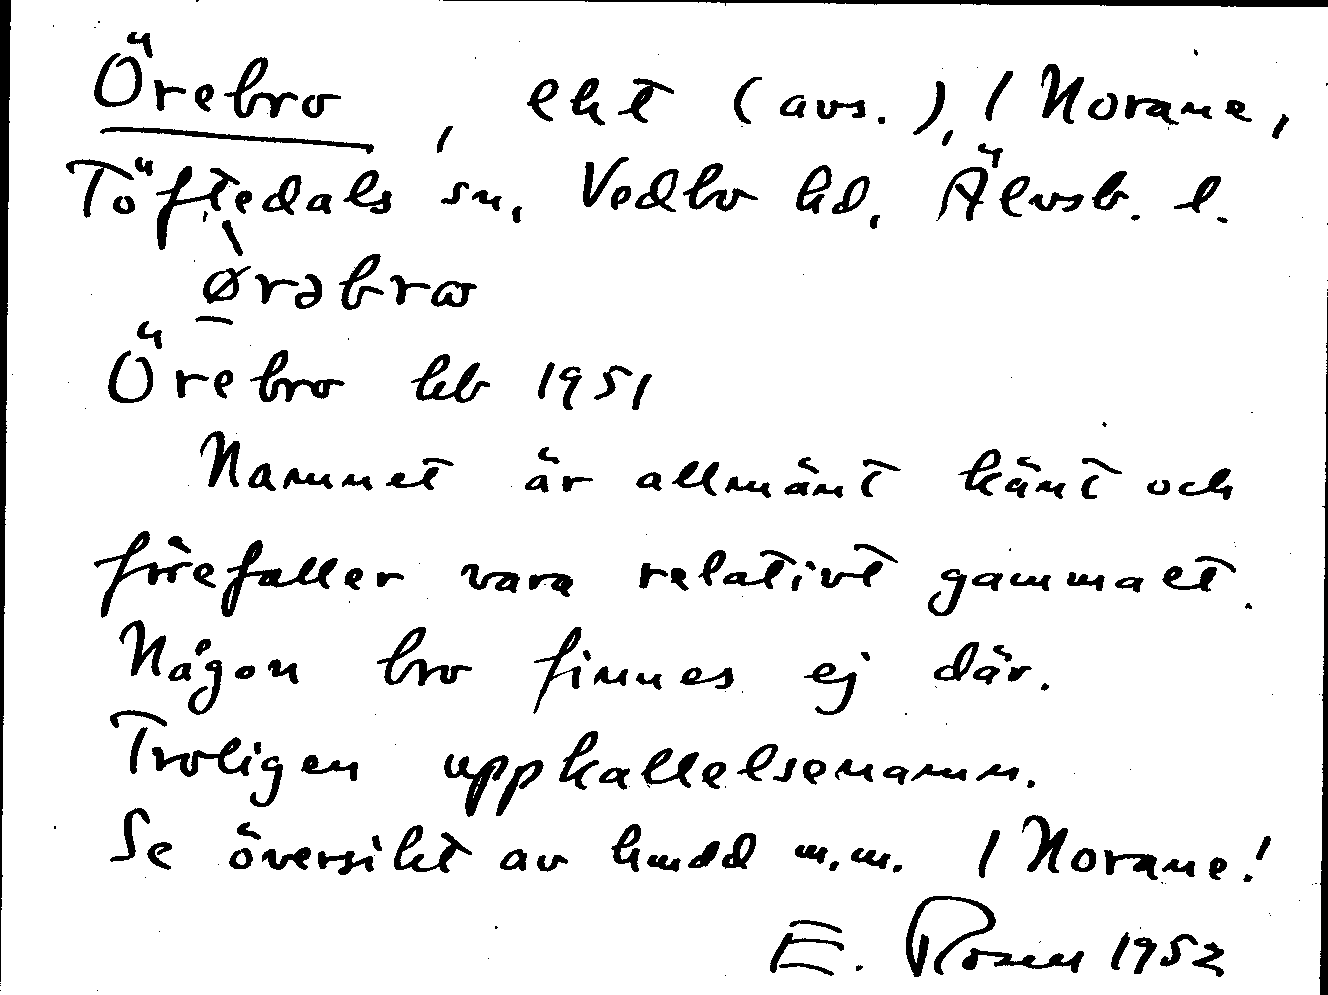 Örebro, eht (avs.), / Norane,
Töftedals sn, Vedbo hd, Älvsb. l.
`ørəbrω
Örebro kb 1951
Namnet är allmänt känt och
förefaller vara relativt gammalt.
Någon bro finnes ej där.
Troligen uppkallelsenamn.
Se översikt av hmdd m.m. / Norane!
E. Rosen 1952